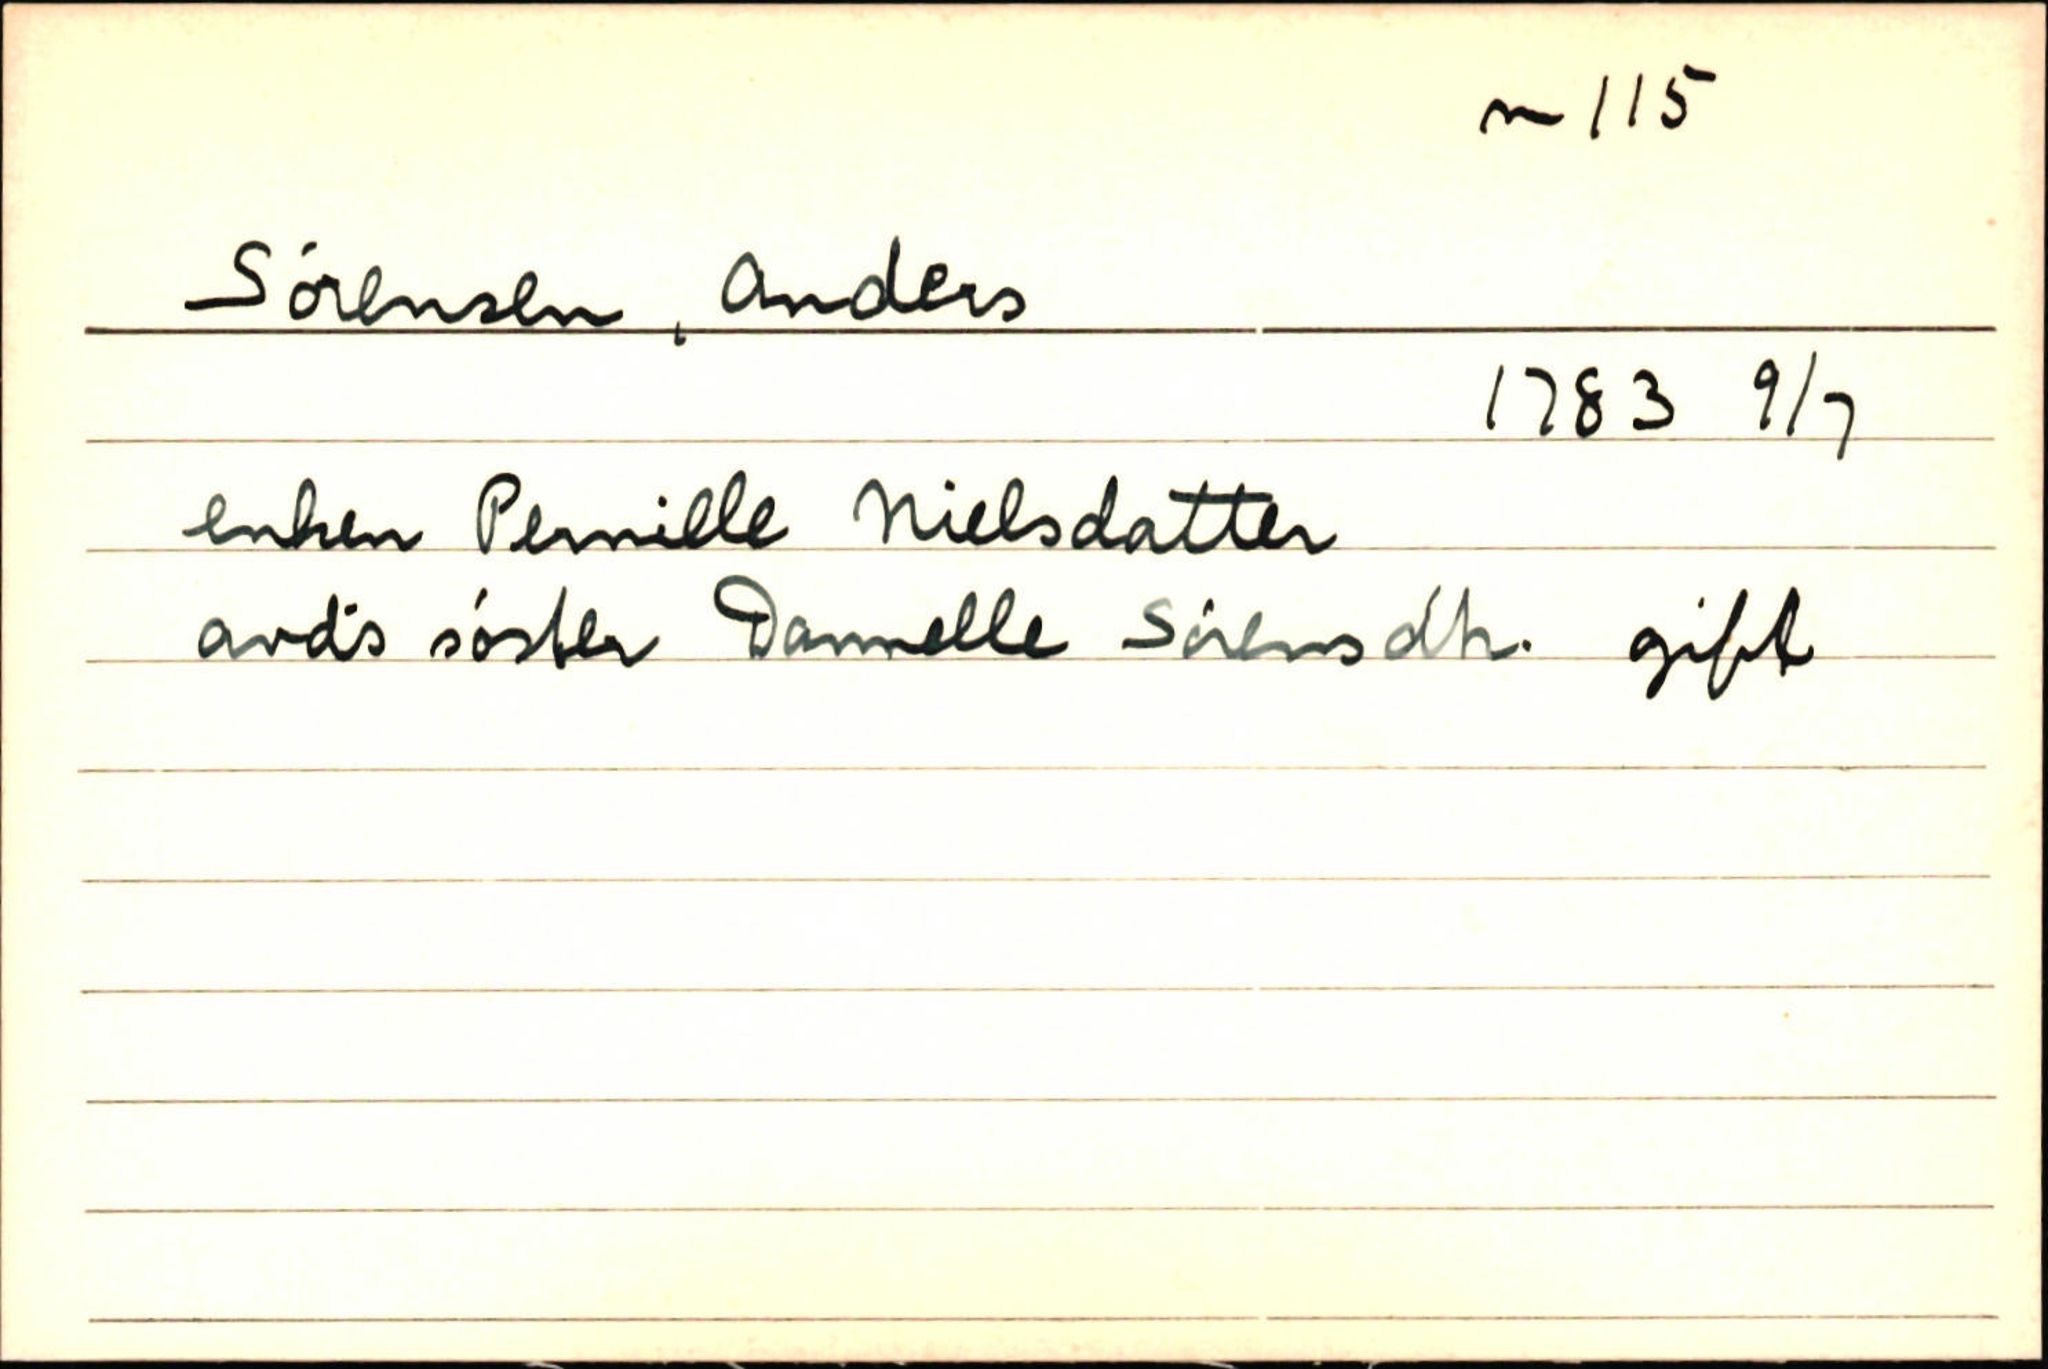 m 115
Sórensen, Anders
1783 9/7
enken Pernille Nielsdatter
avd's sóster Dannelle Sórensdtr. gift